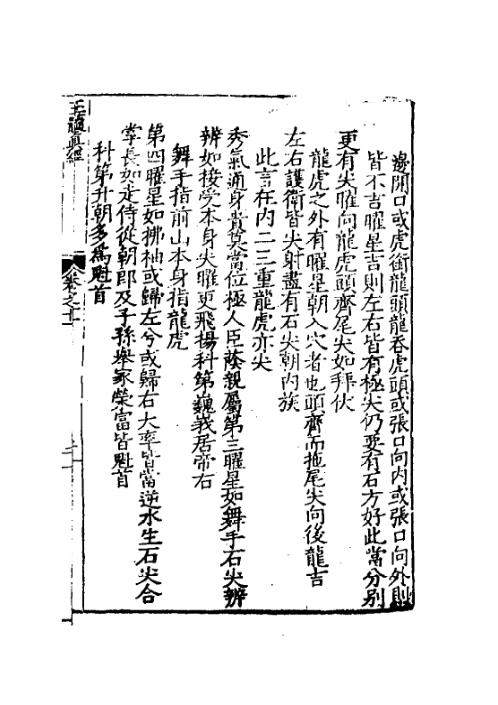 邊開口或虎銜龍頭龍吞虎頭或張口向內或張口向外則
皆不吉曜星吉則左右皆有極尖仍要有石方好此當分別
更有尖曜向龍虎頭齊尾尖如拜伏
龍虎之外有曜星朝入穴者也頭齊而拖尾尖向後龍吉
左右護衛皆尖射盡有石尖朝內族
此言在內二三重龍虎亦尖
秀氣通身貴莫當位極人臣蔭親屬第三曜星如舞手石尖辨
辨如接受本身尖曜更飛揚科第巍峩居帝右
舞手指前山本身指龍虎
第四曜星如拂柚或歸左兮或歸右大率皆當逆水生石尖合
掌長如走侍從朝郎及子孫舉家榮富皆魁首
科第升朝多為魁首
玉髓真經
卷之十